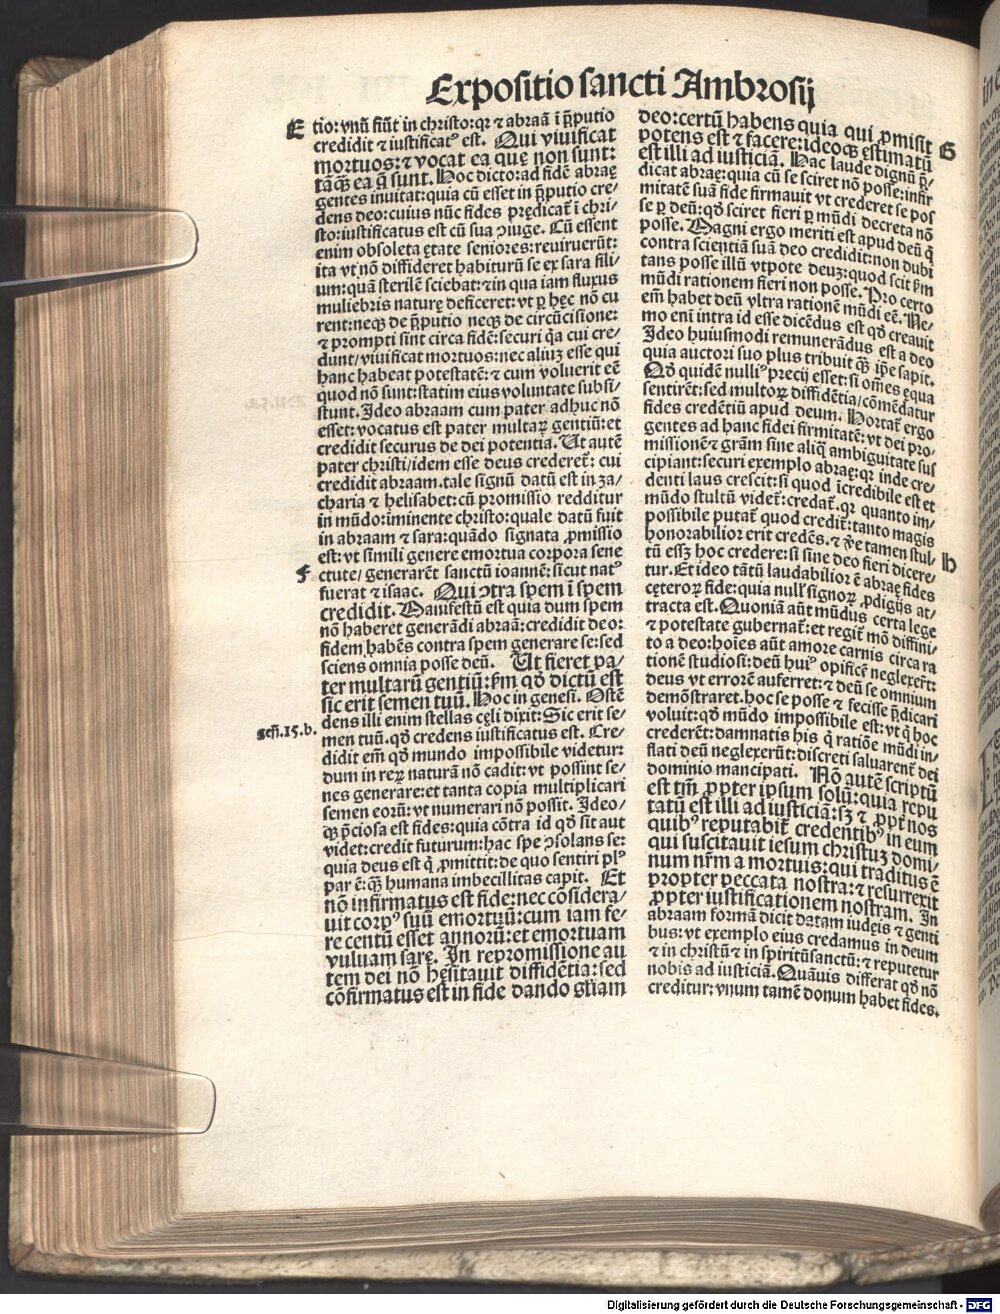 Expositio sancti Ambrosij
E tio: vnũ fiũt in christo: qꝛ ⁊ abraã ĩ p̃putio
credidit ⁊ iustificatꝰ est. Qui viuificat
mortuos: ⁊ vocat ea quę non sunt:
tãq̃ȝ ea q̃ sunt. Hoc dicto: ad fidẽ abraę
gentes inuitat: quia cũ esset in p̃putio cre/
dens deo: cuius nũc fides prędicat̃ ĩ chri/
sto: iustificatus est cũ sua ꝯiuge. Cũ essent
enim obsoleta ętate seniores: reuiruerũt:
ita vt nõ diffideret habiturũ se ex sara fili/
um: quã sterilẽ sciebat: ⁊ in qua iam fluxus
muliebris naturę deficeret: vt ꝑ hęc nõ cu
rent: neqꝫ de p̃putio neqꝫ de circũcisione:
⁊ prompti sint circa fidẽ: securi q̃a cui cre/
dunt/ viuificat mortuos: nec aliuȝ esse qui
hanc habeat potestatẽ: ⁊ cum voluerit eẽ
quod nõ sunt: statim eius voluntate subsi/
stunt. Ideo abraam cum pater adhuc nõ
esset: vocatus est pater multaꝝ gentiũ: et
credidit securus de dei potentia. Ut autẽ
pater christi/ idem esse deus crederet̃: cui
credidit abraam. tale signũ datũ est in za/
charia ⁊ helisabet: cũ promissio redditur
in mũdo: iminente christo: quale datũ fuit
in abraam ⁊ sara: quãdo signata ꝓmissio
est: vt simili genere emortua corpora sene
F ctute/ generarẽt sanctũ ioannẽ: sicut natꝰ
fuerat ⁊ isaac. Qui ꝯtra spem ĩ spem
credidit. Manifestũ est quia dum spem
nõ haberet generãdi abraã: credidit deo:
fidem habẽs contra spem generare se: sed
sciens omnia posse deũ. Ut fieret pa/
ter multarũ gentiũ: k̃m qð dictũ est
sic erit semen tuũ. Hoc in genesi. Ostẽ
gen̄. 15. b. dens illi enim stellas cęli dixit: Sic erit se/
men tuũ. qð credens iustificatus est. Cre/
didit em̃ qð mundo impossibile videtur:
dum in reꝝ naturã nõ cadit: vt possint se/
nes generare: et tanta copia multiplicari
semen eoꝝ: vt numerari nõ possit. Ideo/
qꝫ p̃ciosa est fides: quia cõtra id qð sit aut
videt: credit futurum: hac spe ꝯsolans se:
quia deus est q̃ ꝓmittit: de quo sentiri plꝰ
par ẽ: q̃ȝ humana imbecillitas capit. Et
nõ infirmatus est fide: nec cõsidera/
uit corpꝰ suũ emortuũ: cum iam fe/
re centũ esset annorũ: et emortuam
vuluam sarę. In repromissione au
tem dei nõ hęsitauit diffidẽtia: sed
cõfirmatus est in fide dando gl̃iam
deo: certũ habens quia qui ꝓmisit G
potens est ⁊ facere: ideoqꝫ ęstimatũ
est illi ad iusticiã. Hac laude dignũ p̃/
dicat abraę: quia cũ se sciret nõ posse: infir
mitatẽ suã fide firmauit vt crederet se pos
se ꝑ deũ: qð sciret fieri ꝑ mũdi decreta nõ
posse. Magni ergo meriti est apud deũ q̃
contra scientiã suã deo credidit: non dubi
tans posse illũ vtpote deuȝ: quod scit k̃m
mũdi rationem fieri non posse. Pro certo
em̃ habet deũ vltra rationẽ mũdi eẽ. Ne/
mo eni intra id esse dicẽdus est qð creauit
Ideo huiusmodi remunerãdus est a deo
quia auctori suo plus tribuit q̃ȝ ip̃e sapit.
Qð quidẽ nulliꝰ precij esset: si om̃es ęqua
sentirẽt: sed multoꝝ diffidẽtia/ cõmẽdatur
fides credẽtiũ apud deum. Hortat̃ ergo
gentes ad hanc fidei firmitatẽ: vt dei pro/
missionẽ ⁊ gr̃am sine aliq̃ ambiguitate sus
cipiant: securi exemplo abraę: qꝛ inde cre/
denti laus crescit: si quod ĩcredibile est et
mũdo stultũ videt̃: credat̃. qꝛ quanto im/
possibile putat̃ quod credit̃: tanto magis
honorabilior erit credẽs. ⁊ ꝟe tamen stul/
tũ essȝ hoc credere: si sine deo fieri dicere/ H
tur. Et ideo tãtũ laudabilior ẽ abraę fides
cęteroꝝ fide: quia null̃ signoꝝ ꝓdigijs at/
tracta est. Quoniã aũt mũdus certa lege
⁊ potestate gubernat̃: et regit̃ mõ diffini/
to a deo: hoĩes aũt amore carnis circa ra
tionẽ studiosi: deũ huiꝰ opificẽ neglexer̃t:
deus vt errorẽ auferret: ⁊ deũ se omnium
demõstraret. hoc se posse ⁊ fecisse p̃dicari
voluit: qð mũdo impossibile est: vt q̃ hoc
crederẽt: damnatis his q̃ ratiõe mũdi in/
flati deũ neglexerũt: discreti saluarent̃ dei
dominio mancipati. Nõ autẽ scriptũ
est tm̃ ꝓpter ipsum solũ: quia repu
tatũ est illi ad iusticiã: sȝ ⁊ ꝓpt̃ nos
quibꝰ reputabit̃ credentibꝰ in eum
qui suscitauit iesum christuȝ domi/
num nr̃m a mortuis: qui traditus ẽ
propter peccata nostra: ⁊ resurrexit
ꝓpter iustificationem nostram. In
abraam formã dicit datam iudęis ⁊ genti
bus: vt exemplo eius credamus in deum
⁊ in christũ ⁊ in spiritũ sanctũ: ⁊ reputetur
nobis ad iusticiã. Quãuis differat qð nõ
creditur: vnum tamẽ donum habet fides.
Digitalisierung gefördert durch die Deutsche Forschungsgemeinschaft - DFG